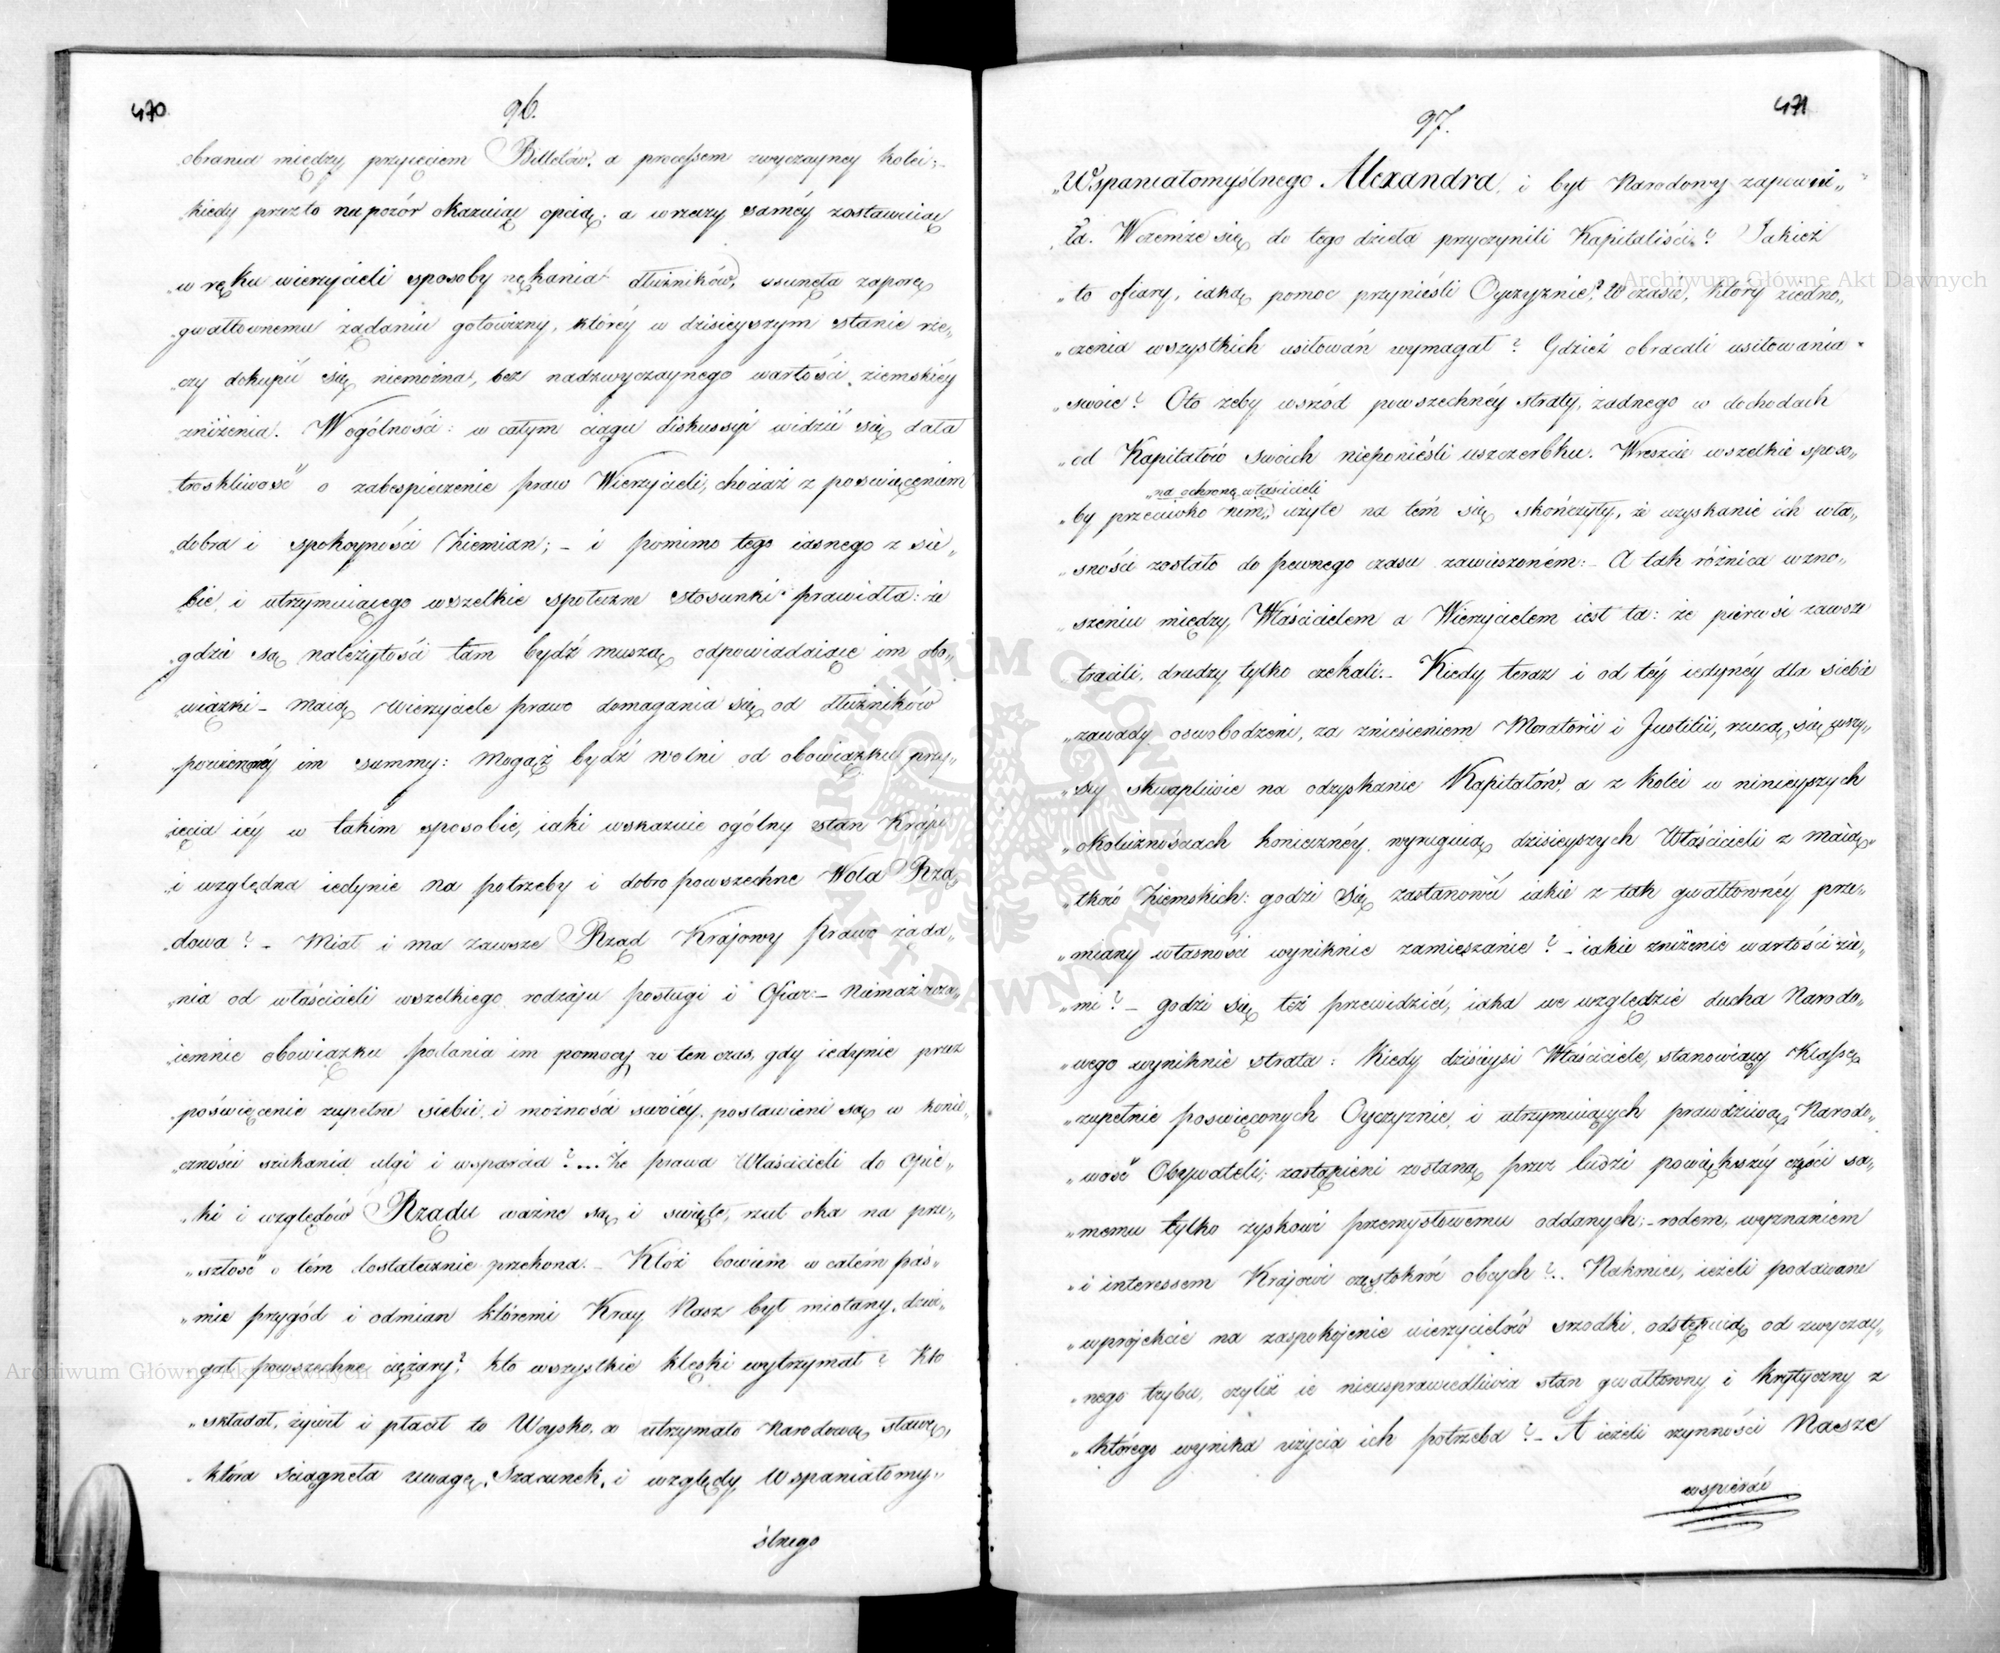 470
96.
obrania między przyięciem Billetów, a processem zwyczayney kolei;
kiedy przezto napozór okazuiąc opcią, a w rzeczy saméy zostawuiąc
„w ręku wierzycieli sposoby nękania dłużników, usunęła zaporę
gwałtownemu żądaniu gotowizny, któréy w dzisieyszym stanie rze„
„czy dokupić się niemożna, bez nadzwyczaynego wartości ziemskiéy
zniżenia. Wogólności: w całym ciągu diskussyi widzić się dała
troskliwość o zabespieczenie praw Wierzycieli, chociaż z poswięceniem
„dobra i spokoyności Ziemian; – i pomimo tego iasnego z sie„
bie, i utrzymuiącego wszelkie społeczne stosunki prawidła: że
gdzie są należytości tam bydź muszą odpowiadaiące im obo„
wiązki – Maią Wierzyciele prawo domagania się od dłużników
powierzonéy im summy: Mogąż bydź wolni od obowiązku przy„
ięcia iéy w takim sposobie, iaki wskazuie ogólny stan Kraju
„i względna iedynie na potrzeby i dobro powszechne Wola Rzą„
dowa? – Miał i ma zawsze Rząd Krajowy Prawo żąda„
„nia od właścicieli wszelkiego rodzaju posługi i Ofiar – Niemaż wza„
iemnie obowiązku podania im pomocy w ten czas, gdy iedynie przez
poświęcenie zupełne siebie i możności swoiéy, postawieni są w konie„
„czności szukania ulgi i wsparcia?... Że prawa Właścicieli do Opie„
„ki i względów Rządu ważne są i święte, rzut oka na prze„
„szłość o tém dostatecznie przekona. – Któż bowiem w całém paś„
„mie przygód i odmian któremi Kray Nasz był miotany, dźwi„
gał powszechne ciężary? kto wszystkie klęski wytrzymał? Kto
„składał, żywił i płacił to Woysko, co utrzymało Narodową sławę,
która ściągnęła uwagę, Szacunek, i względy Wspaniałomy„
ślnego
471
97.
„Wspaniałomyślnego Alexandra, i byt Narodowy zapewni„
„ła. Wczemże się do tego dzieła przyczynili Kapitaliści? Jakież
„to ofiary, iaką pomoc przynieśli Oyczyznie? W czasie, który ziedno„
„czenia wszystkich usiłowań wymagał? Gdzież obracali usiłowania
„swoie? Oto żeby wsród powszechnéy straty, żadnego w dochodach
„od Kapitałów swoich nieponieśli uszczerbku. Wreszcie wszelkie sposo„
„na ochronę właścicieli
„by przeciwko nim, użyte na tém się skończyły, że uzyskanie ich wła„
„sności zostało do pewnego czasu zawieszoném: – A tak różnica wzno„
szeniu między Właścicielem a Wierzycielem iest ta: że pierwsi zawsze
tracili, drudzy tylko czekali. – Kiedy teraz i od téy iedynéy dla siebie
„zawady oswobodzeni, za zniesieniem Moratorii i Justitii, rzucą się wszy„
„scy skwapliwie na odzyskanie Kapitałów, a z kolei w ninieyszych
„okolicznościach konieczney, wyruguią dzisieyszych Właścicieli z maią„
„tków Ziemskich: godzi się zastanowić iakie z tak gwałtownéy prze„
„miany własności wyniknie zamieszanie? – iakie zniżenie wartości zie„
„mi? – godzi się też przewidzieć, iaka we względzie ducha Narodo„
„wego wyniknie strata: Kiedy dzisieysi Właściciele, stanowiący Klassę
„zupełnie poswięconych Oyczyznie, i utrzymuiących prawdziwą Narodo„
„wość Obywateli, zastąpieni zostaną przez ludzi powiększéy części sa„
„memu tylko zyskowi przemysłowemu oddanych; – rodem, wyznaniem
„i interessem Krajowi częstokroć obcych?.. Nakoniec, ieżeli podawane
„wprojekcie na zaspokojenie wierzycielów srodki, odstępuią od zwyczay„
„nego trybu, czyliż ie nieusprawiedliwia stan gwałtowny i krytyczny z
„którego wynika użycia ich potrzeba? – A ieżeli czynności Nasze
wspierać
Archiwum Główne Akt Dawnych
Archiwum Główne Akt Dawnych
ARCHIWUM GŁÓWNE AKT DAWNYCH